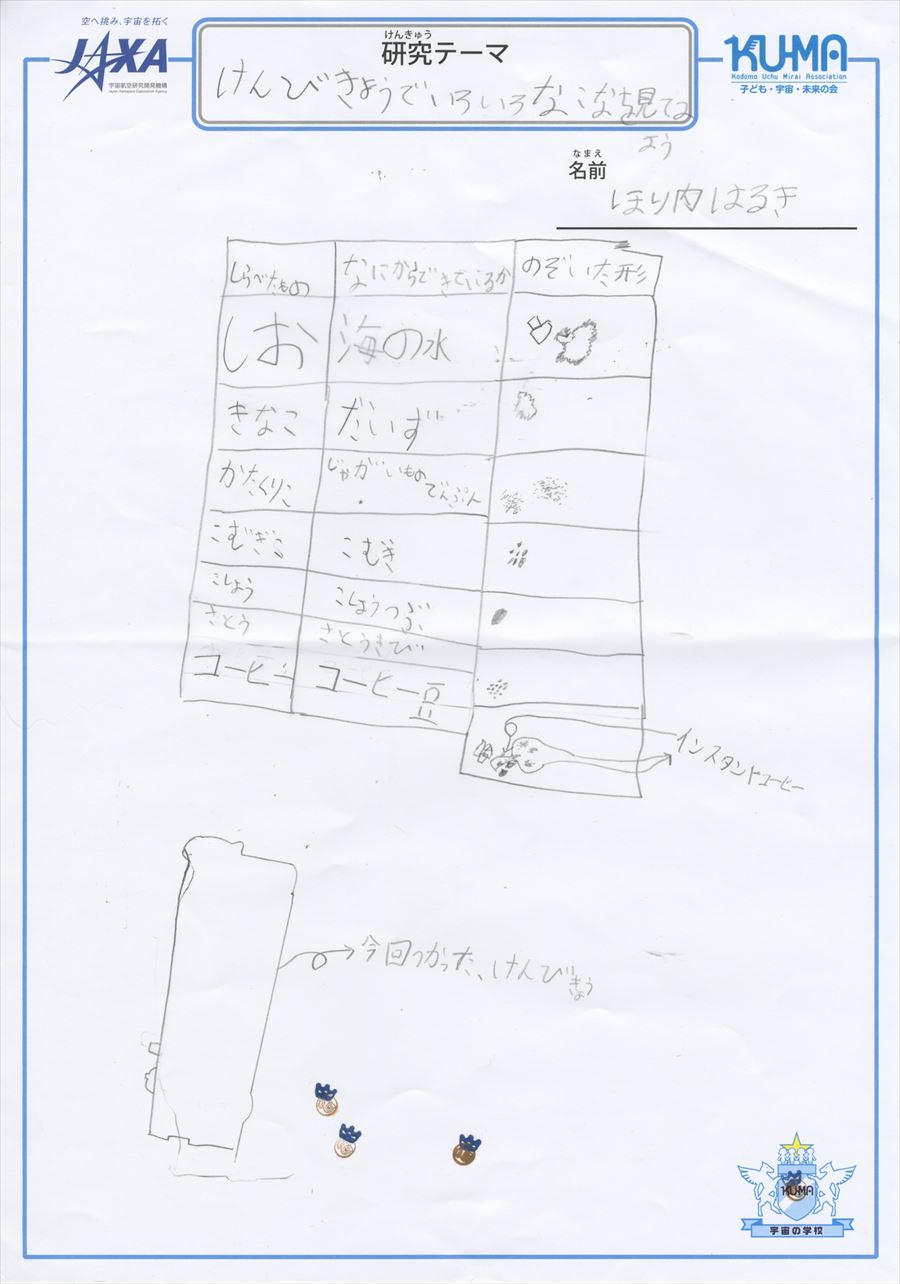 空へ挑み、宇宙を拓く
JAXA
宇宙航空研究開発機構
Japan Aerospace Exploration Agency
けんきゅう
研究テーマ
けんびきょうでいろいろなこなを見てみ
よう
KU-MA
Kodomo Uchu Mirai Association
子ども・宇宙・未来の会
なまえ
名前
ほり内はるき
しらべたもの なにからできているか のぞいた形
しお 海の水
きなこ だいず
かたくりこ じゃがいもの
でんぷん
こむぎこ こむぎ
こしょう こしょうつぶ
さとう さとうきび
コーヒー コーヒー豆
インスタントコーヒー
今回つかった、けんびきょう
KU-MA
宇宙の学校